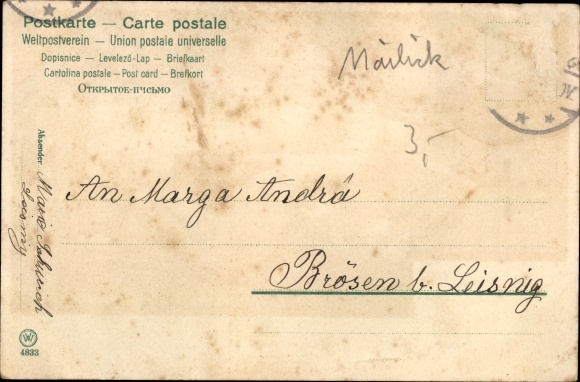 Postkarte — Carte postale
Weltpostverein — Union postale universelle
Dopisnice — Levelező-Lap — Briefkaart
Cartolina postale — Post card — Brefkort
Открытое письмо
3,-
An Marga Andrä
Brösen b. Leisnig
Absender:
W
4833